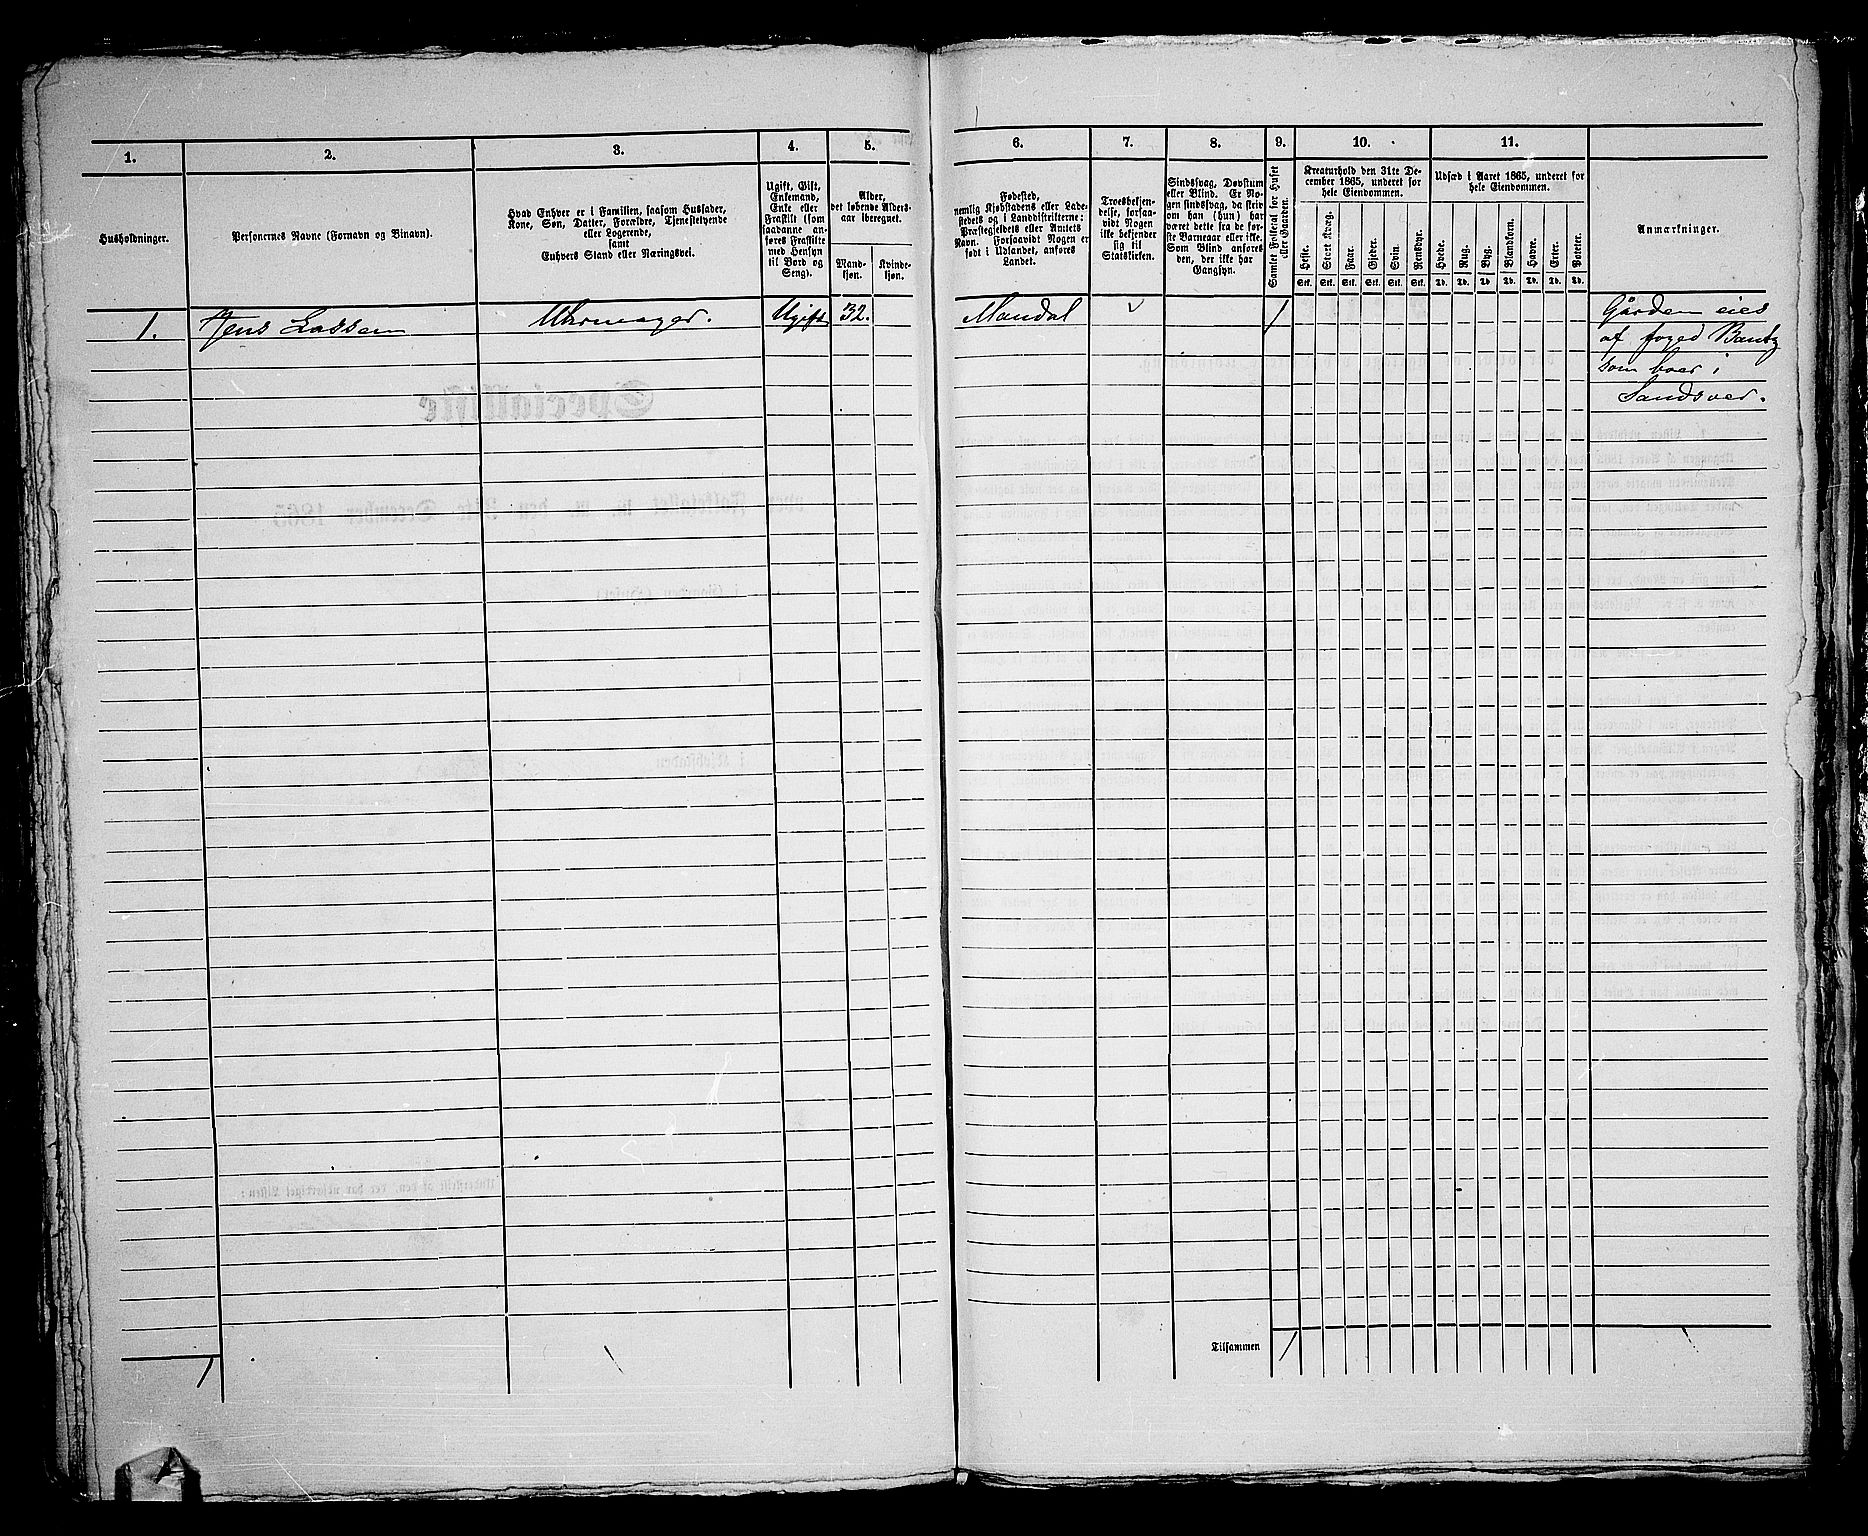 1.
2.
3.
4.
5.
6.
7.
8.
9.
10.
11.
Husholdninger.
Personernes Navne (Fornavn og Binavn).
Hvad Enhver er i Familien, saasom Husfader,
Kone, Søn, Datter, Forældre, Tjenestetyende
eller Logerende,
samt
Enhvers Stand eller Næringsvei.
Ugift, Gift,
Enkemand,
Enke eller
Fraskilt (som
saadanne an-
føres Fraskilte
med Hensyn
til Bord og
Seng).
Alder,
det løbende Alders-
aar iberegnet.
Mand-
kjøn.
Kvinde-
kjøn.
Fødested,
nemlig Kjøbstadens eller Lade-
stedets og i Landdistrikterne:
Præstegjeldets eller Amtets
Navn. Forsaavidt Nogen er
født i Udlandet, anføres
Landet.
Troesbekjen-
delse, forsaa-
vidt Nogen
ikke bekjender
sig til
Statskirken.
Sindssvag, Døvstum
eller Blind. Er No-
gen sindssvag, da skriv
om han (hun) har
været dette fra de før-
ste Barneaar eller ikke.
Som Blind anføres
den, der ikke har
Gangsyn.
Samlet Folketal for Huset
eller Gaarden.
Kreaturhold den 31te De-
cember 1865, underet for
hele Eiendommen.
Heste.
Stort Kvæg.
Faar.
Gjeder.
Svin.
Rensdyr.
Stk. Stk. Stk. Stk. Stk. Stk.
Udsæd i Aaret 1865, underet for
hele Eiendommen.
Hvede.
Rug.
Byg.
Blandkorn.
Havre.
Erter.
Poteter.
Td. Td. Td. Td. Td. Td. Td.
Anmærkninger.
1. Jens Lassen Uhrmager. Ugift 32. Mandal 1
Gården eies
af foged Bautz
som boer i
Sandsver.
Tilsammen
1
1